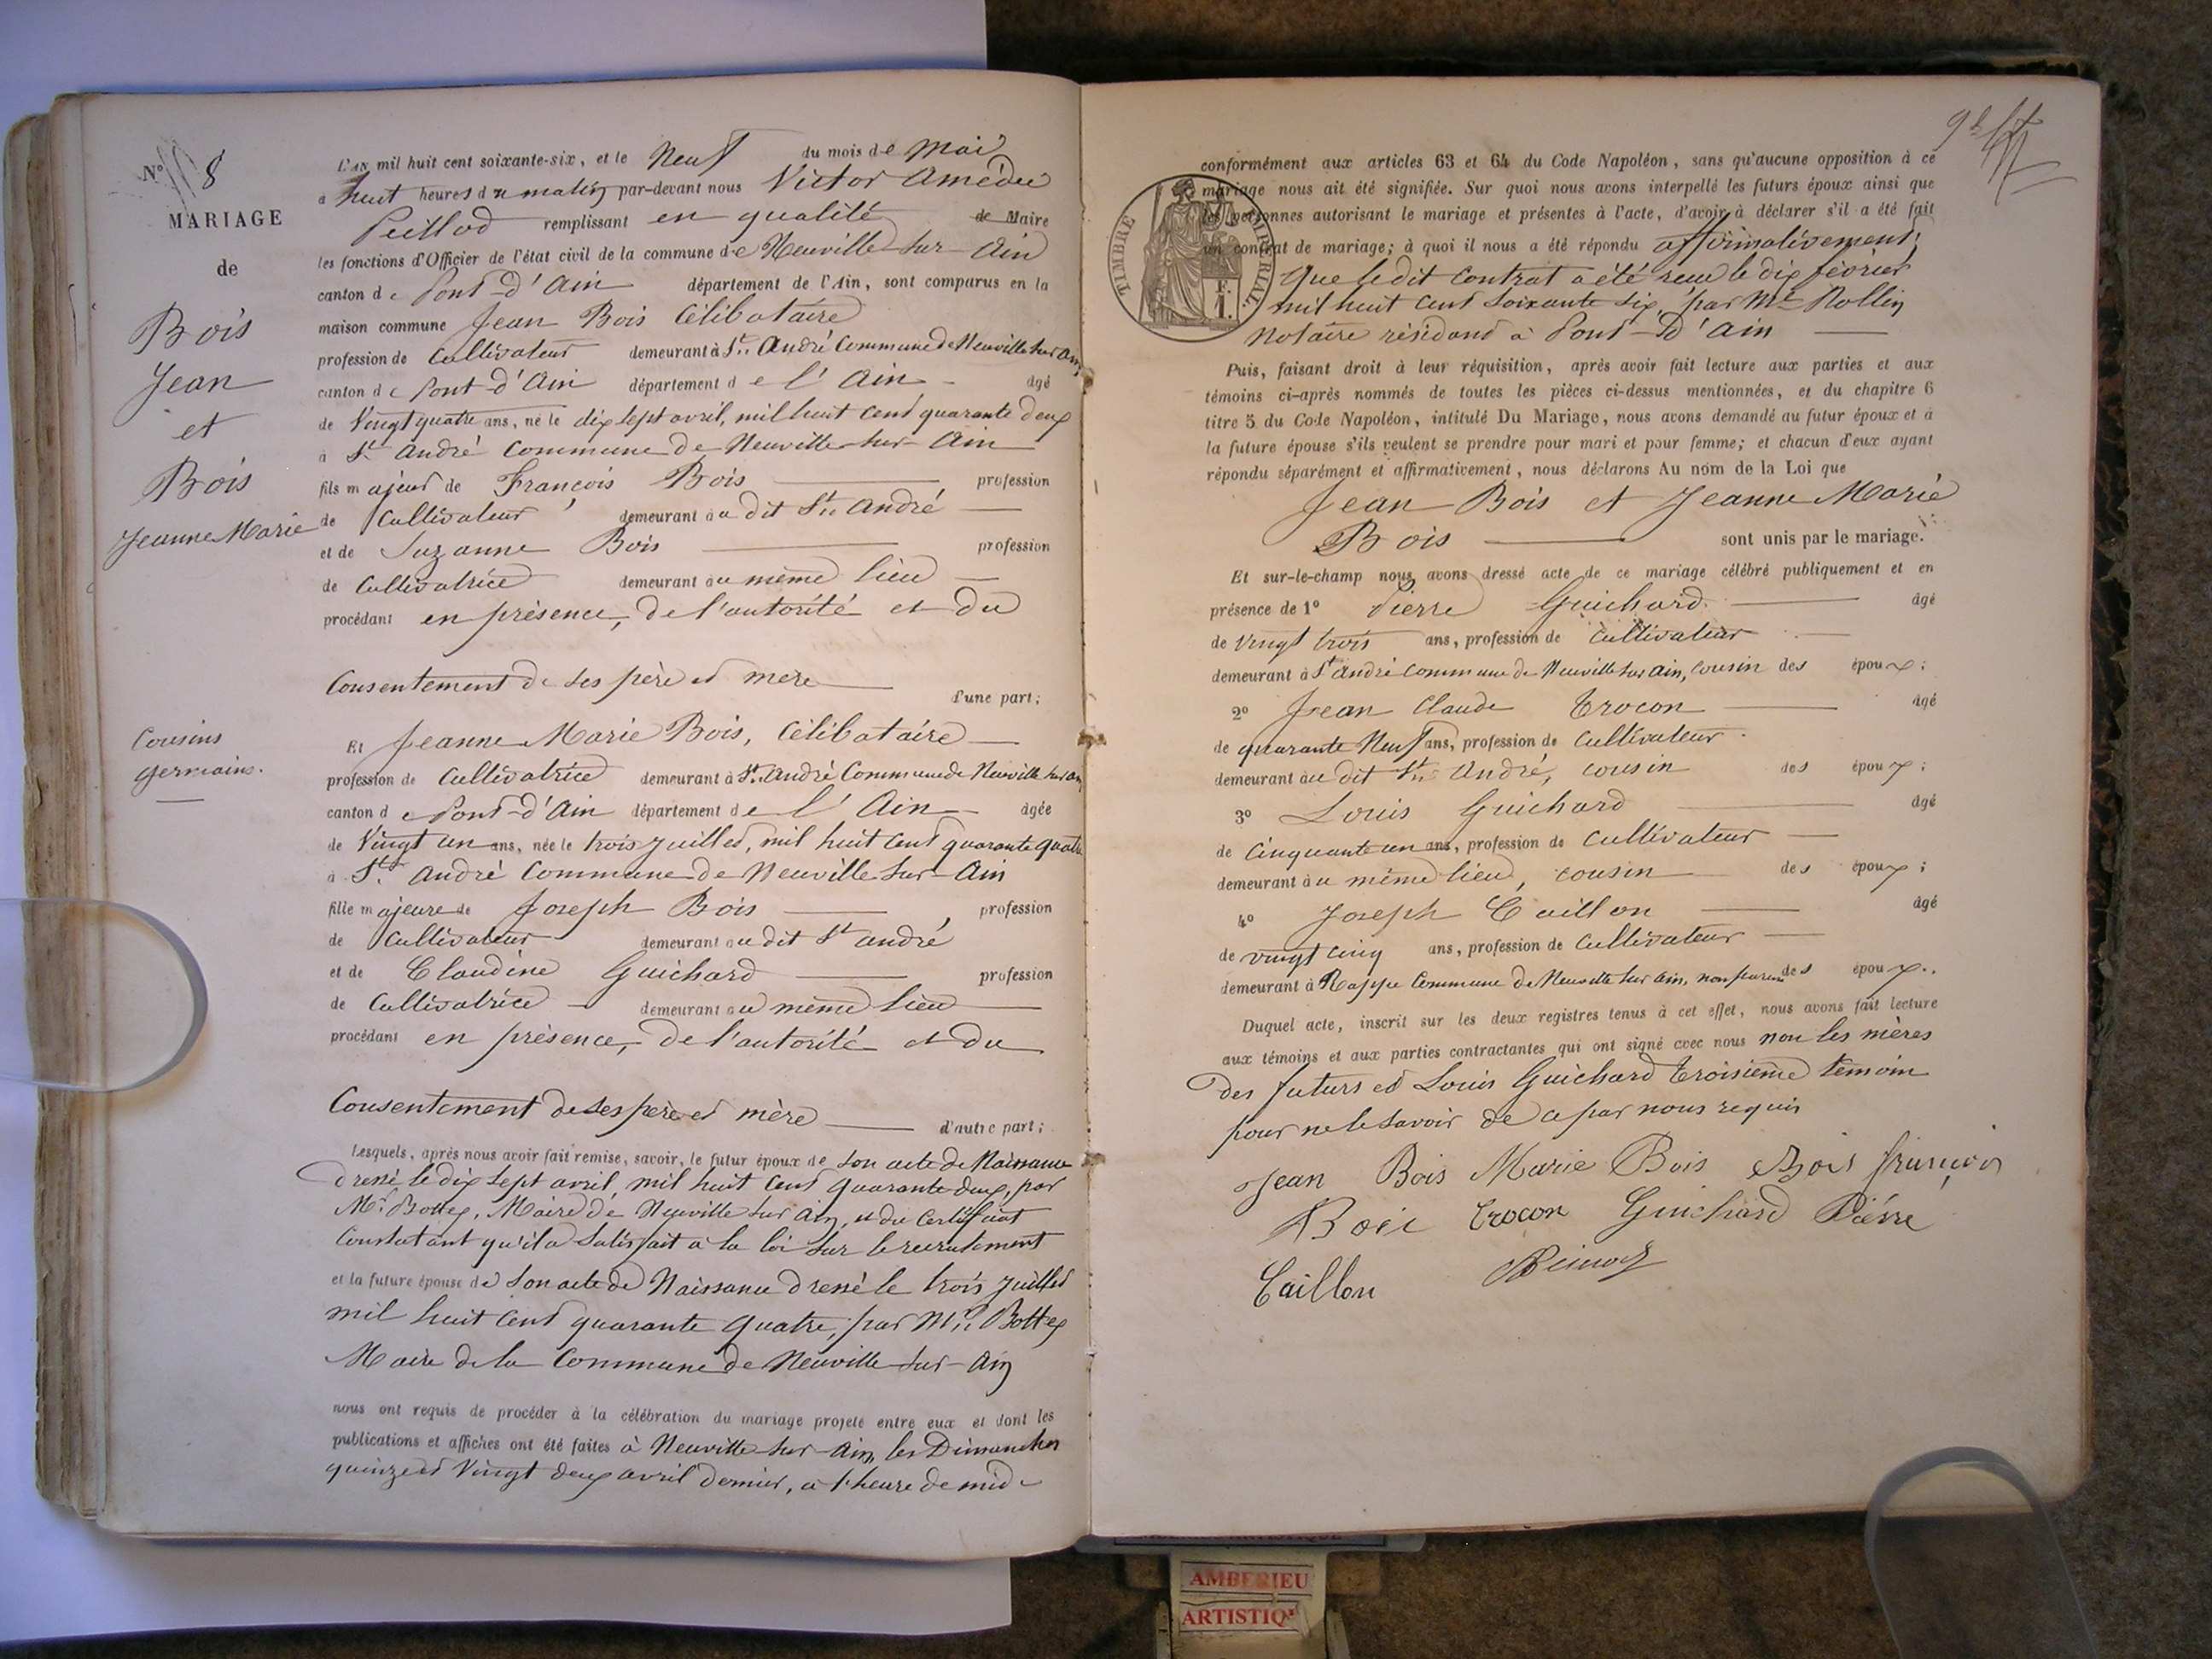 N° 8
MARIAGE
de
Bois
Jean
et
Bois
Jeanne Marie
Cousins
germains.
L'AN mil huit cent soixante-six, et le Neuf du mois de Mai
à huit heures du matin par-devant nous Victor Amédée
Peillod remplissant en qualité de Maire
les fonctions d'Officier de l'état civil de la commune de Neuville sur Ain
canton de Pont-d'Ain département de l'Ain, sont comparus en la
maison commune Jean Bois Célibataire
profession de Cultivateur demeurant à St. André Commune de Neuville sur Ain
canton de Pont-d'Ain département de l'Ain âgé
de Vingt quatre ans, né le dix sept avril, mil huit cent quarante deux
à St André Commune de Neuville sur Ain
fils majeur de François Bois profession
de Cultivateur demeurant au dit St. André
et de Suzanne Bois profession
de Cultivatrice demeurant au même lieu
procédant en présence, de l'autorité et du
Consentement de ses père et mère
d'une part;
Et Jeanne Marie Bois, Célibataire
profession de Cultivatrice demeurant à St. André Commune de Neuville sur Ain
canton de Pont-d'Ain département de l'Ain âgée
de Vingt un ans, née le trois juillet, mil huit cent quarante quatre
à St. André Commune de Neuville sur Ain
fille majeure de Joseph Bois profession
de Cultivateur demeurant au dit St André
et de Claudine Guichard profession
de Cultivatrice demeurant au même lieu
procédant en présence, de l'autorité et du
Consentement de ses père et mère d'autre part;
Lesquels, après nous avoir fait remise, savoir, le futur époux de son acte de Naissance
dressé le dix sept avril, mil huit cent quarante deux, par
Mr. Bottex, Maire de Neuville sur Ain, et du Certificat
Constatant qu'il a satisfait à la loi sur le recrutement
et la future épouse de son acte de Naissance dressé le trois juillet
mil huit cent quarante quatre, par Mr. Bottex
Maire de la Commune de Neuville sur-Ain
nous ont requis de procéder à la célébration du mariage projeté entre eux et dont les
publications et affiches ont été faites à Neuville sur-Ain, les Dimanches
quinze et Vingt deux avril dernier, à l'heure de midi
conformément aux articles 63 et 64 du Code Napoléon, sans qu'aucune opposition à ce
mariage nous ait été signifiée. Sur quoi nous avons interpellé les futurs époux ainsi que
les personnes autorisant le mariage et présentes à l'acte, d'avoir à déclarer s'il a été fait
un contrat de mariage; à quoi il nous a été répondu affirmativement;
TIMBRE IMPÉRIAL.
1 F.
que le dit Contrat a été reçu le dix février
mil huit cent soixante six, par Me Rollin
Notaire résidant à Pont-d'Ain
Puis, faisant droit à leur réquisition, après avoir fait lecture aux parties et aux
témoins ci-après nommés de toutes les pièces ci-dessus mentionnées, et du chapitre 6
titre 5 du Code Napoléon, intitulé Du Mariage, nous avons demandé au futur époux et à
la future épouse s'ils veulent se prendre pour mari et pour femme; et chacun d'eux ayant
répondu séparément et affirmativement, nous déclarons Au nom de la Loi que
Jean Bois et Jeanne Marie
Bois sont unis par le mariage.
Et sur-le-champ nous avons dressé acte de ce mariage célébré publiquement et en
présence de 1° Pierre Guichard âgé
de vingt trois ans, profession de Cultivateur
demeurant à St André Commune de Neuville sur Ain, cousin des époux;
2° Jean Claude Trocon âgé
de quarante Neuf ans, profession de Cultivateur
demeurant au dit St. André, cousin des époux;
3° Louis Guichard âgé
de Cinquante un ans, profession de Cultivateur
demeurant au même lieu, cousin des époux;
4° Joseph Caillon âgé
de vingt cinq ans, profession de Cultivateur
demeurant à Rappe Commune de Neuville sur Ain, non parent des époux.
Duquel acte, inscrit sur les deux registres tenus à cet effet, nous avons fait lecture
aux témoins et aux parties contractantes qui ont signé avec nous non les mères
des futurs et Louis Guichard troisième témoin
pour ne le savoir de ce par nous requis
Jean Bois Marie Bois Bois françois
Bois Trocon Guichard Piérre
Caillon
AMBERIEU
ARTISTIQ